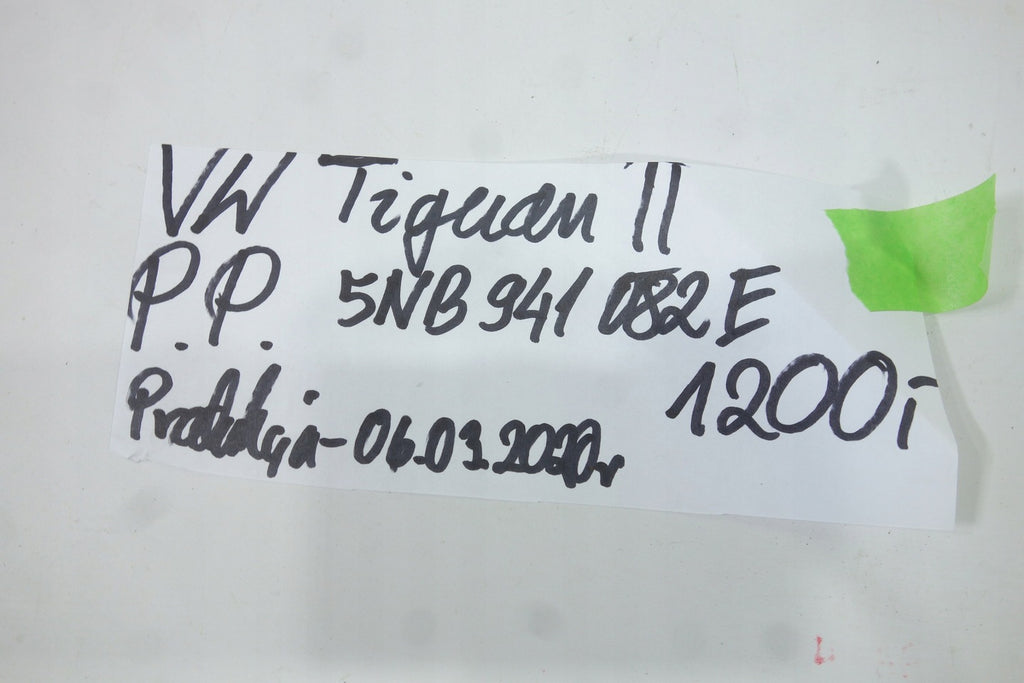 VW Tiguan II
P.P. 5NB 941 082 E
1200,-
Produkcja - 06.03.2020r